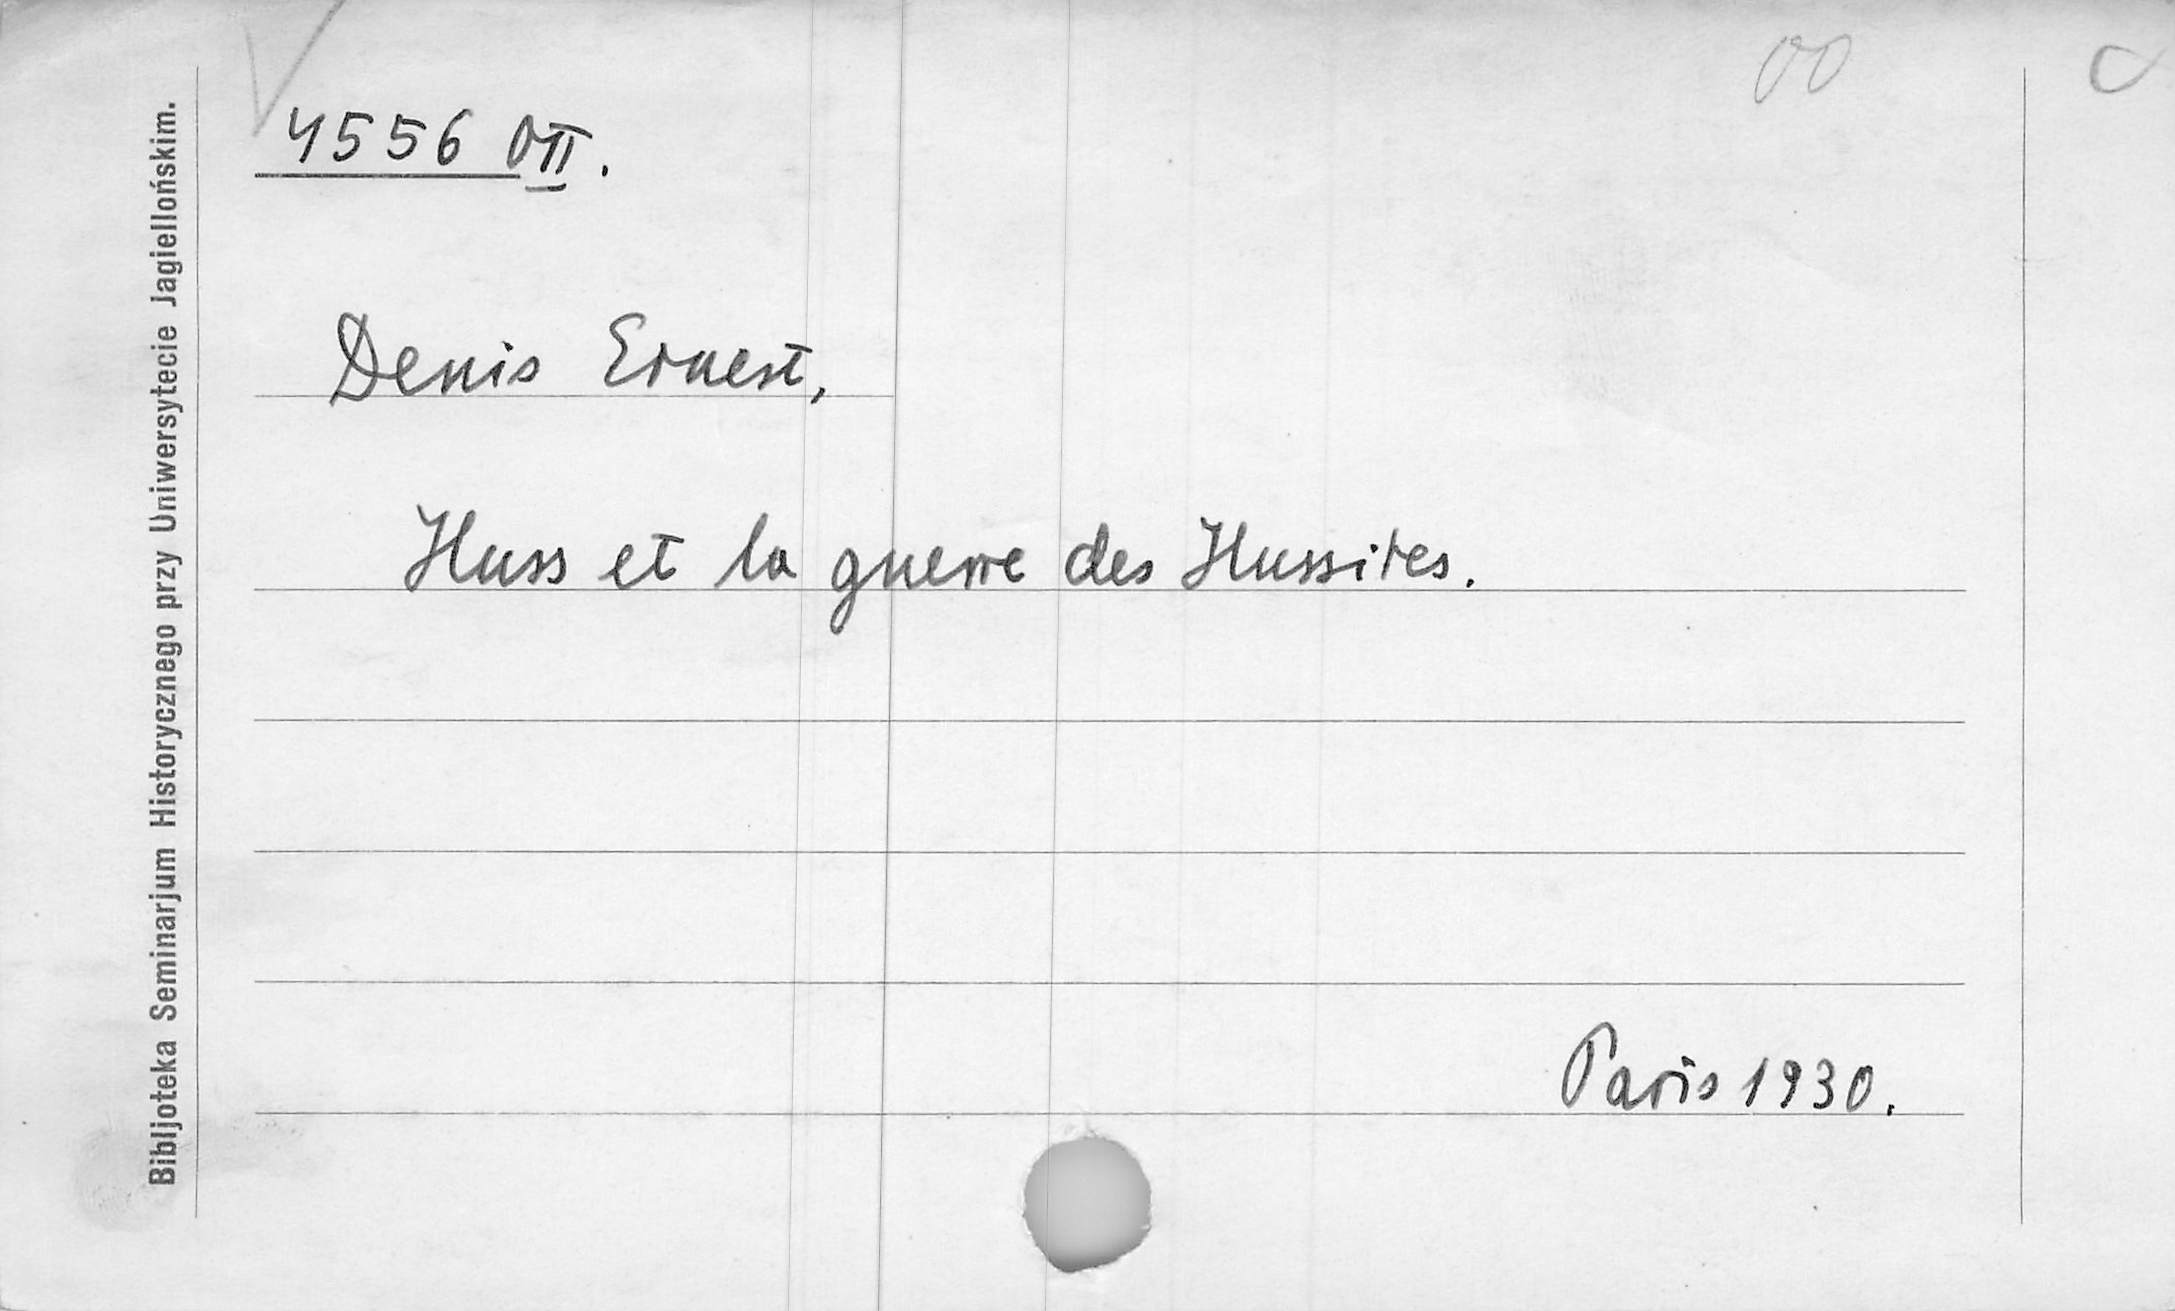 4556 OII.
Denis Ernest,
Huss et la guerre des Hussites.
Paris 1930.
Bibljoteka Seminarjum Historycznego przy Uniwersytecie Jagiellońskim.